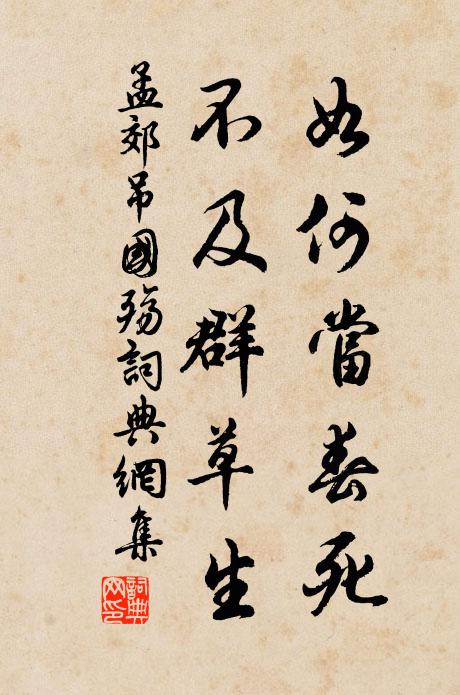 如何當春死
不及群草生
孟郊吊國殤詞典網集
詞典
网印